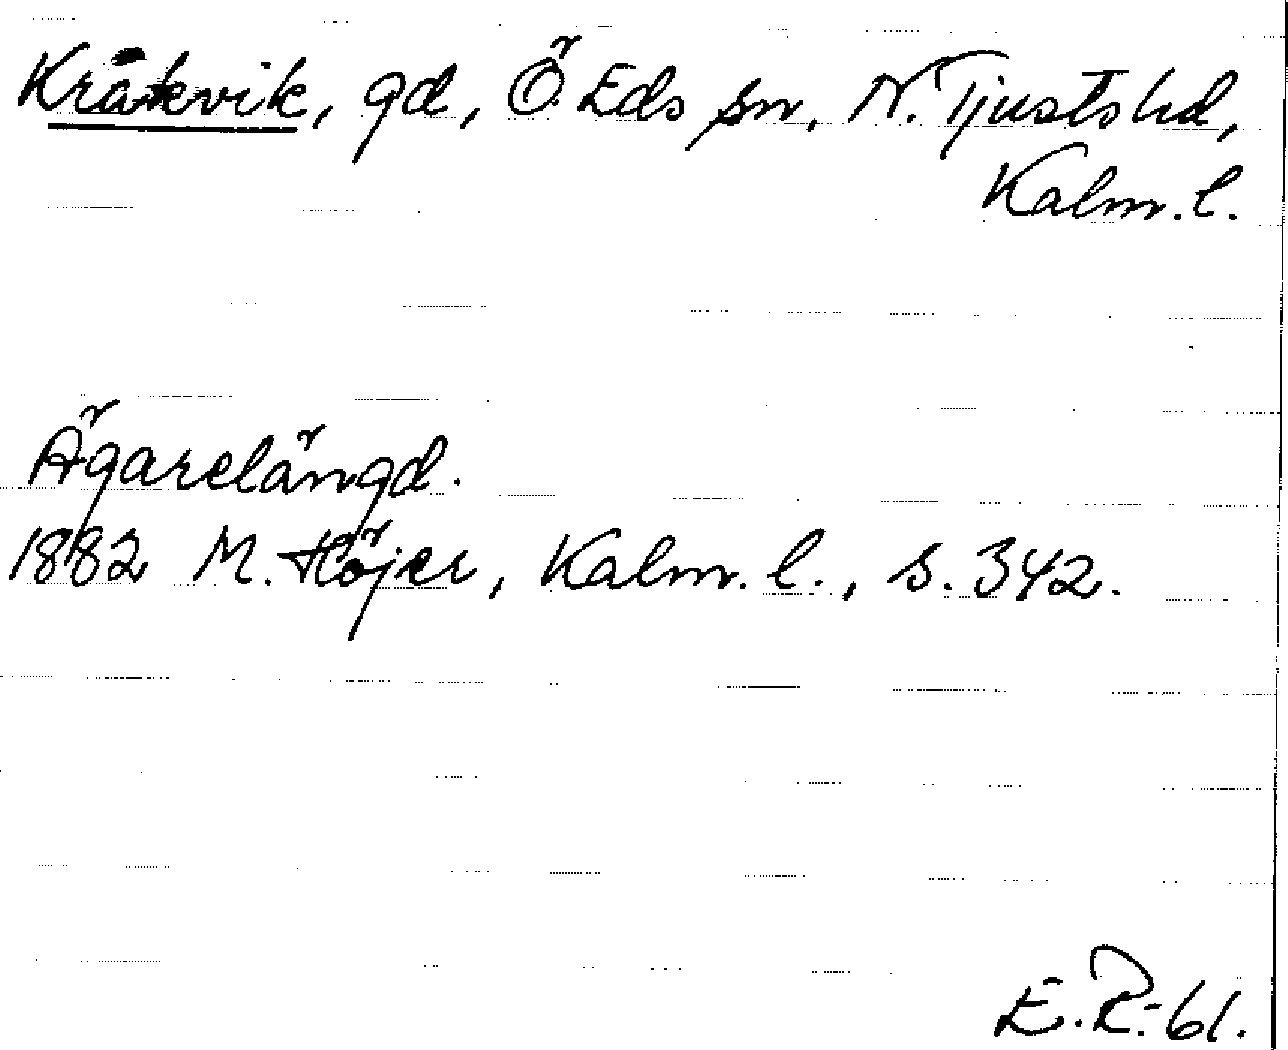 Kråkvik, gd, Ö. Eds sn, N. Tjusts hd,
Kalm. l.
Ägarelängd.
1882 M. Höjer, Kalm. l., s. 342.
E.R.-61.